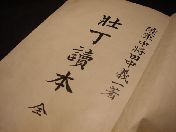 陸軍中將田中義一著
壯丁讀本
全